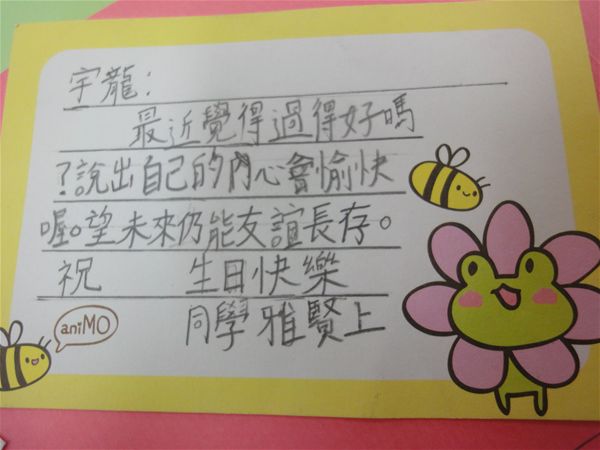 宇龍：
最近覺得過得好嗎
？說出自己的內心會愉快
喔。望未來仍能友誼長存。
祝 生日快樂
同學 雅賢上
aniMO